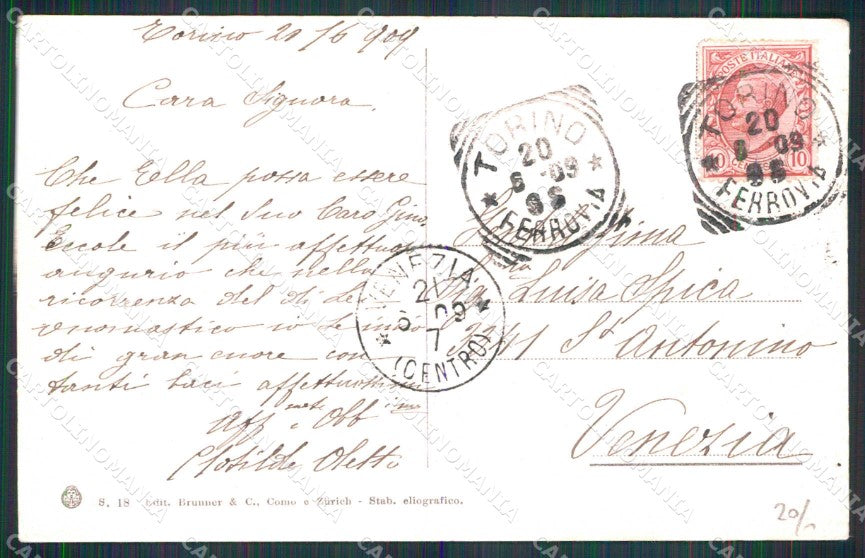 Torino 20/6 909
Cara Signora,
Che Ella possa essere
felice nel Suo Caro Gino.
Eccole il più affettuos
augurio che nella
ricorrenza del di Le
onomastico io le invio
di gran cuore con
tanti baci affettuosissimi
aff mete Obb ima
Clotilde Oletti
S. 18 Edit. Brunner & C., Como e Zürich - Stab. eliografico.
POSTE ITALIANE
10 CENT 10
TORINO
20
6 09
9 S
FERROVIA
TORINO
20
6 - 09
9 S
FERROVIA
VENEZIA
21
6 09
7
(CENTRO)
Luisa Spica
3341 St Antonino
Venezia
20/-
CARTOLINOMANIA